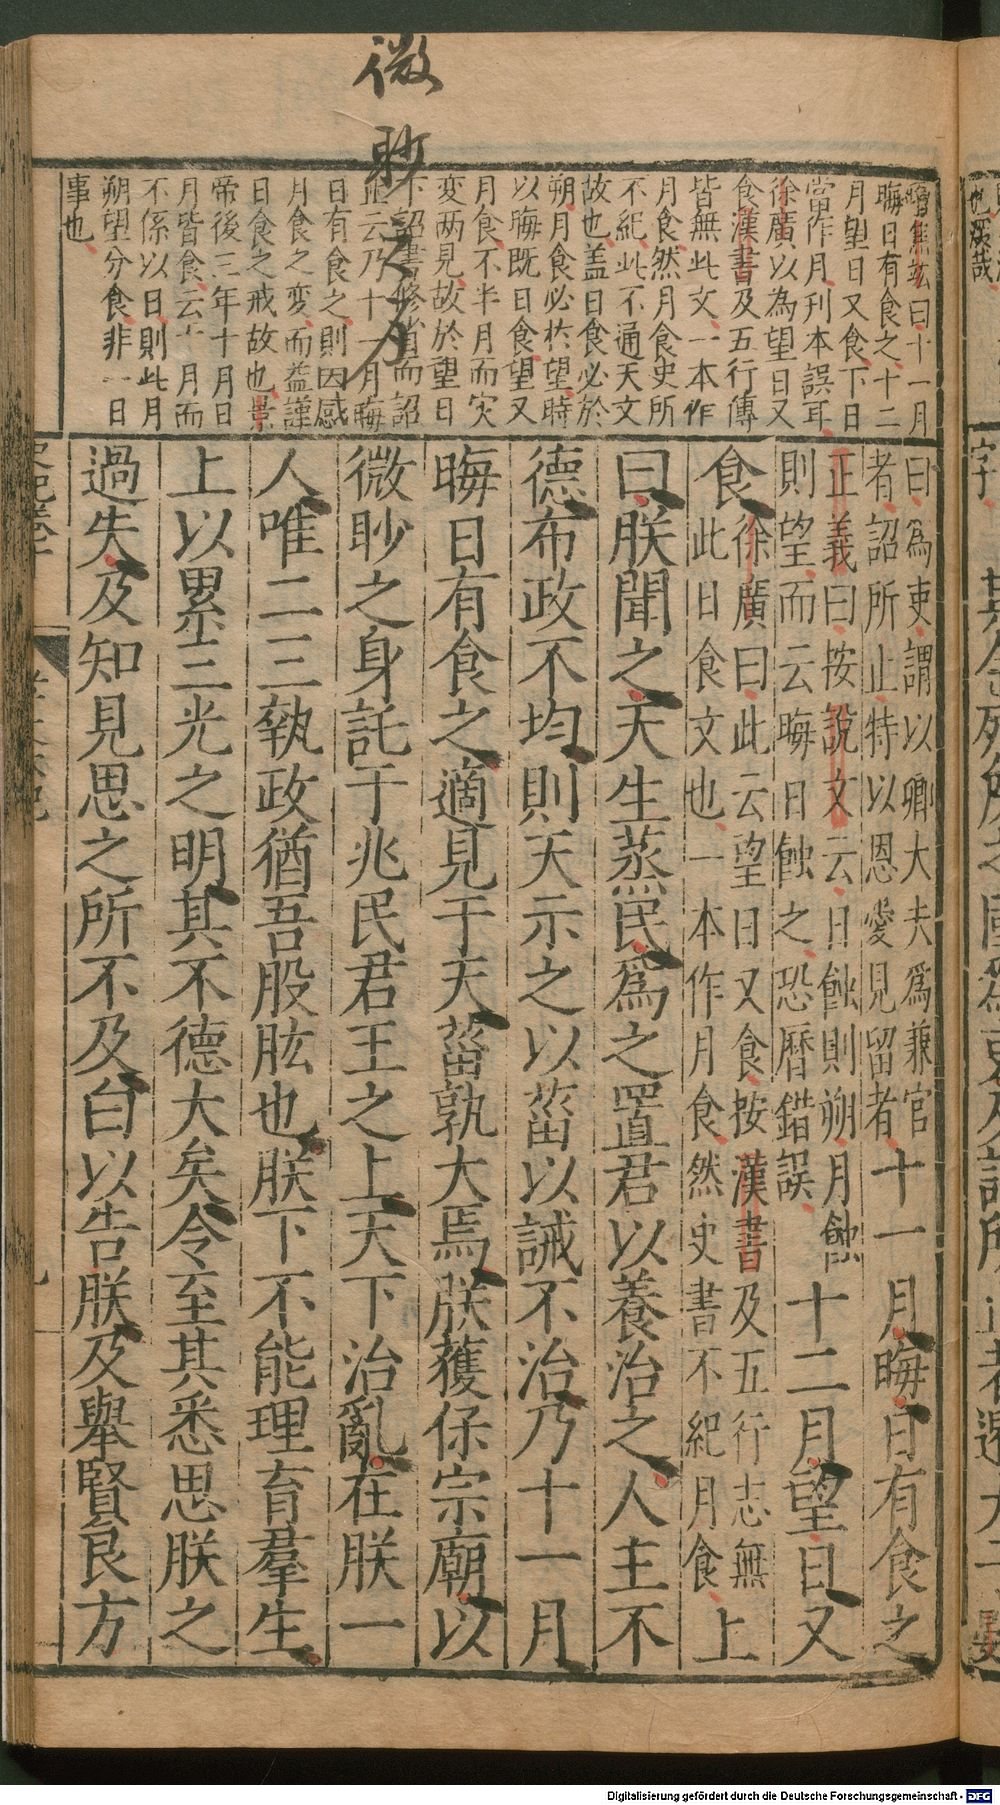 微眇之身
增焦竑曰十一月
晦日有食之十二
月望日又食下日
當作月刊本誤耳
徐廣以為望日又
食漢書及五行傳
皆無此文一本作
月食然月食史所
不紀此不通天文
故也盖日食必於
朔月食必於望時
以晦既日食望又
月食不半月而灾
變两見故於望日
下詔書修省而詔
止云乃十一月晦
日有食之則因感
月食之變而益謹
日食之戒故也景
帝後三年十月日
月皆食云十月而
不係以日則此月
朔望分食非一日
事也
曰為吏謂以卿大夫為兼官
者詔所止特以恩愛見留者
十一月晦日有食之
正義曰按說文云日蝕則朔月蝕
則望而云晦日蝕之恐曆錯誤
十二月望日又
食
徐廣曰此云望日又食按漢書及五行志無
此日食文也一本作月食然史書不紀月食
上
曰朕聞之天生蒸民為之置君以養治之人主不
德布政不均則天示之以菑以誡不治乃十一月
晦日有食之適見于天菑孰大焉朕獲保宗廟以
微眇之身託于兆民君王之上天下治亂在朕一
人唯二三執政猶吾股肱也朕下不能理育羣生
上以累三光之明其不德大矣令至其悉思朕之
過失及知見思之所不及匄以告朕及舉賢良方
Digitalisierung gefördert durch die Deutsche Forschungsgemeinschaft - DFG